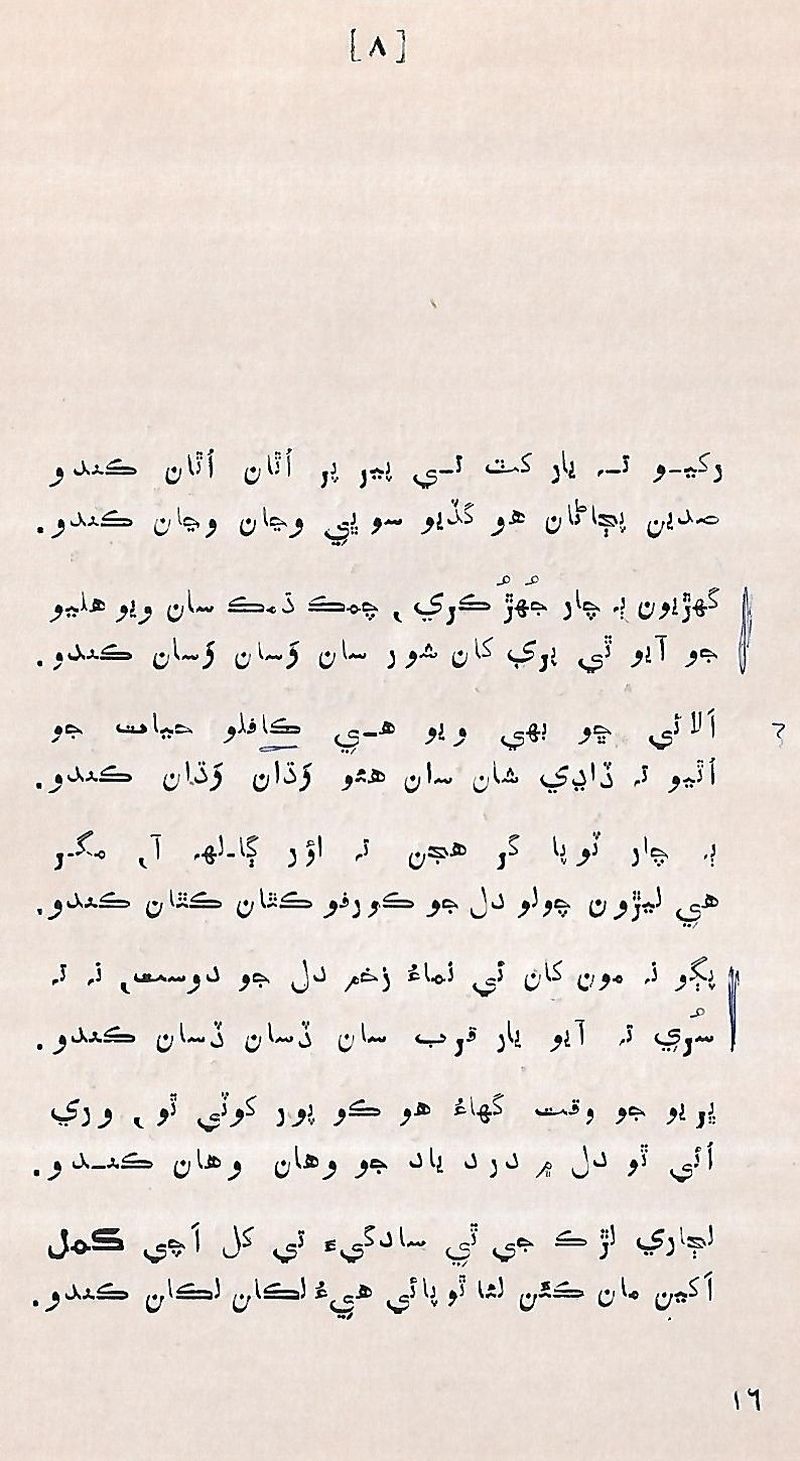 [۸]
رکيو تہ يار کٿ تي پير پر اُٿان اُٿان ڪندو
صدين پڄاڻان هو گڏيو سو ڀي وڃان وڃان ڪندو.
گهڙيون ٻہ چار جُهڙُ ڪري، چمڪ ڌمڪ سان ويو هليو
جو آيو ٿي پري کان شور سان وَسان وَسان ڪندو.
اَلائي ڇو ٻهي ويو هي ڪافلو حيات جو
اُٿيو تہ ڏاڍي شان سان هئو وَڌان وَڌان ڪندو.
ٻہ چار ٽوپا گر هجن تہ اؤر ڳالهہ آ، مگر
هي ليڙون چولو دل جو ڪو رفو ڪٿان ڪٿان ڪندو.
پڳو نہ مون کان ئي نماءُ زخم دل جو دوست، نہ تہ
سُري تہ آيو يار قرب سان ڏسان ڏسان ڪندو.
ڀريو جو وقت گهاءُ هو ڪو پور کوٽي ٿو، وري
اُئي ٿو دل ۾ درد ياد جو وهان وهان ڪندو.
لڇاري لڙڪ جي ٿي سادگيءَ تي کل اَچي ڪمل
اَکين مان ڪئن لٿا ٿو پائي هيءُ لڪان لڪان ڪندو.
١٦